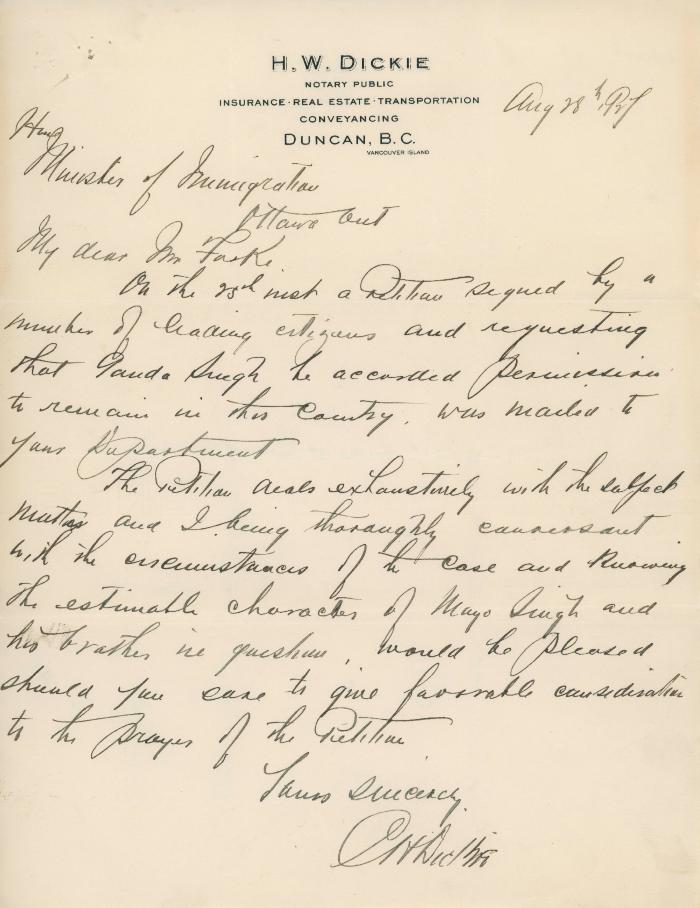 H. W. DICKIE
NOTARY PUBLIC
INSURANCE · REAL ESTATE · TRANSPORTATION
CONVEYANCING
DUNCAN, B.C.
VANCOUVER ISLAND
Aug 28th
Minister of Immigration
Ottawa Ont
My dear Mr Forke
On the 23rd inst a Petition signed by a
number of leading citizens and requesting
that Ganda Singh be accorded permission
to remain in this Country, was mailed to
your Department
The Petition deals exhaustively with the subject
matter and I being thoroughly conversant
with the circumstances of the case and knowing
the estimable character of Mayo Singh and
his brother in question, would be pleased
should you care to give favorable consideration
to the prayer of the Petition
Yours Sincerely
Dickie